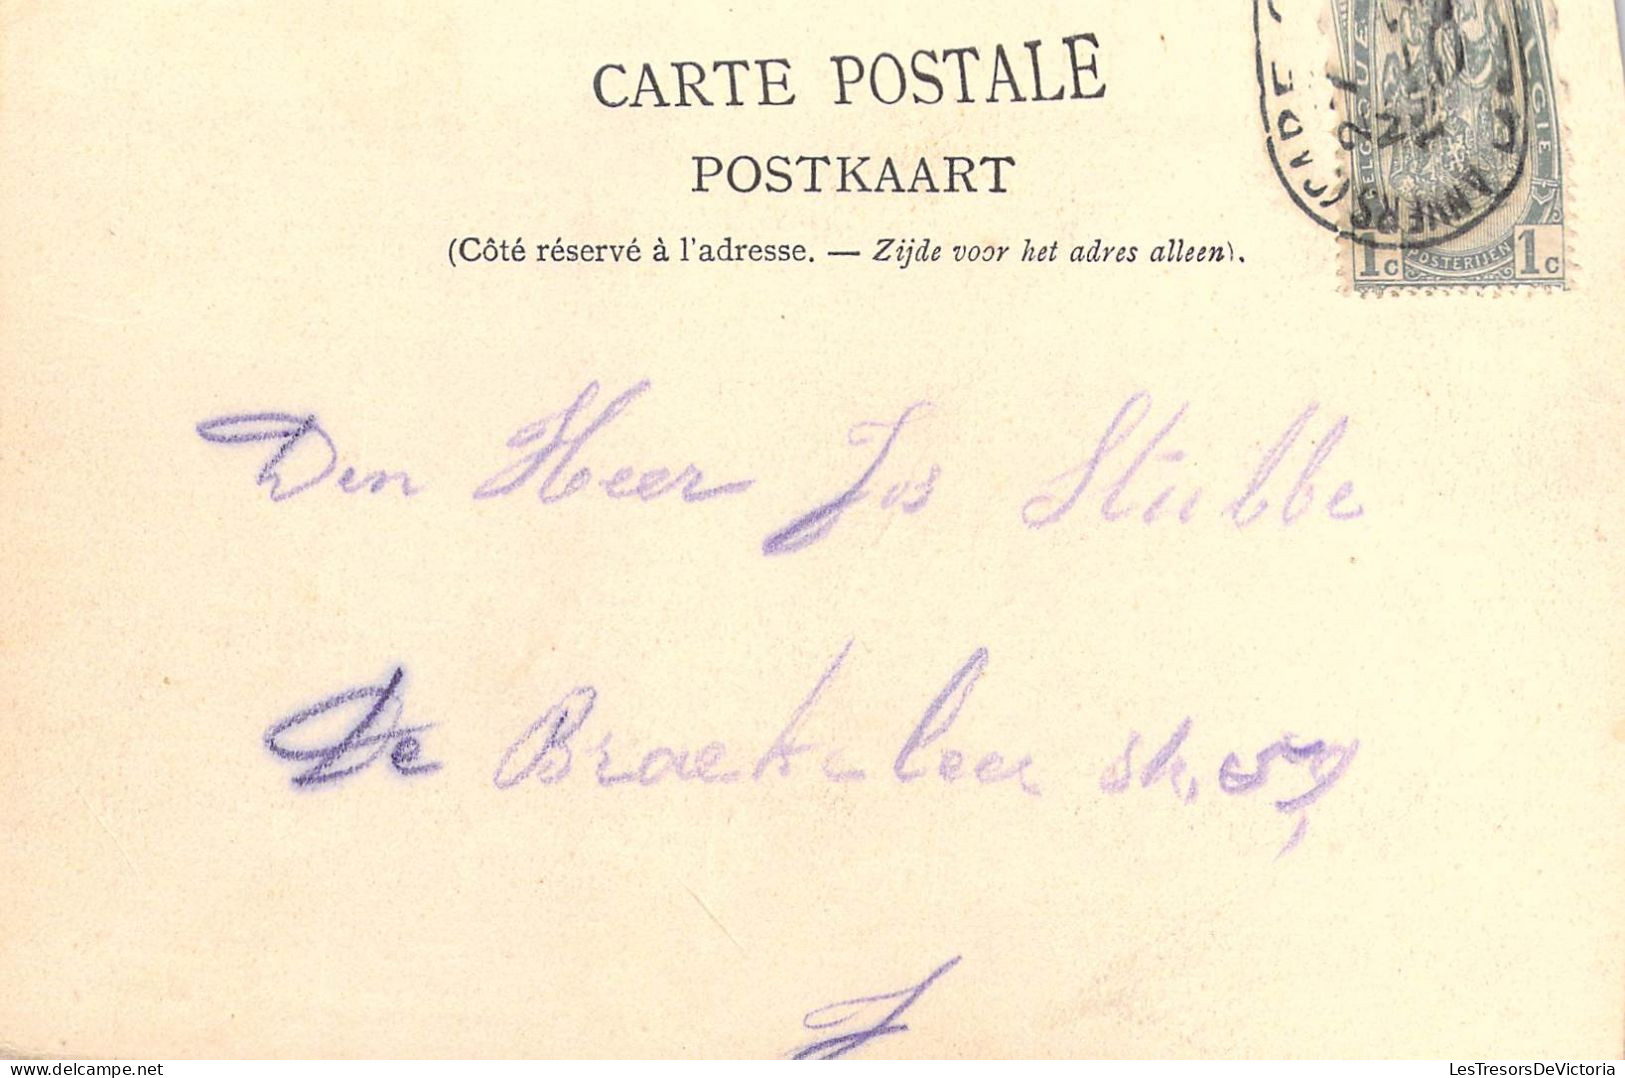 CARTE POSTALE
POSTKAART
(Côté réservé à l'adresse. — Zijde voor het adres alleen).
ANVERS
POSTERIJEN
1c 1c
Den Heer Jos Stubbe
De Braekeleer str. 57
LesTresorsDeVictoria